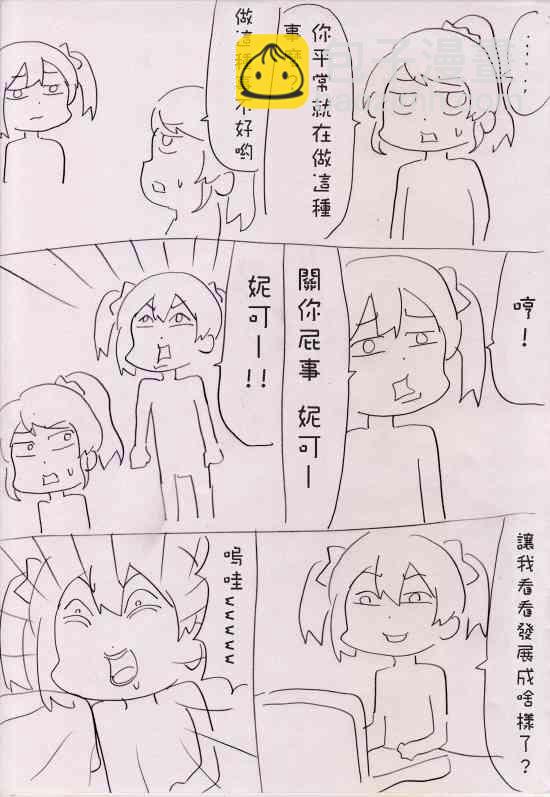 ......
你平常就在做這種
事麼？
做這種事不好喲
哼！
關你屁事 妮可ー
妮可ー!!
讓我看看發展成啥樣了？
嗚哇
包子漫畫